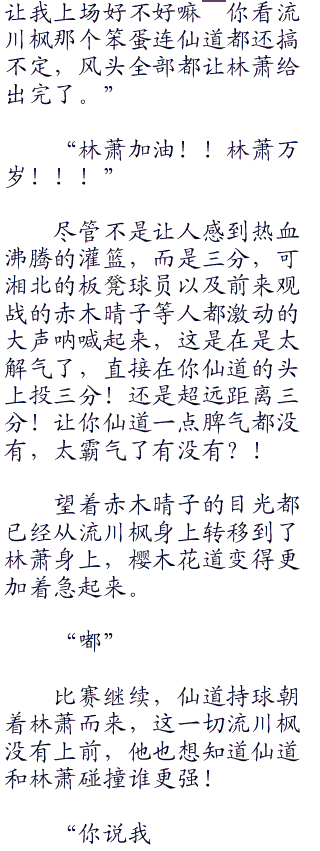 让我上场好不好嘛 你看流
川枫那个笨蛋连仙道都还搞
不定，风头全部都让林萧给
出完了。”
“林萧加油！！林萧万
岁！！！”
尽管不是让人感到热血
沸腾的灌篮，而是三分，可
湘北的板凳球员以及前来观
战的赤木晴子等人都激动的
大声呐喊起来，这是在是太
解气了，直接在你仙道的头
上投三分！还是超远距离三
分！让你仙道一点脾气都没
有，太霸气了有没有？！
望着赤木晴子的目光都
已经从流川枫身上转移到了
林萧身上，樱木花道变得更
加着急起来。
“嘟”
比赛继续，仙道持球朝
着林萧而来，这一切流川枫
没有上前，他也想知道仙道
和林萧碰撞谁更强！
“你说我